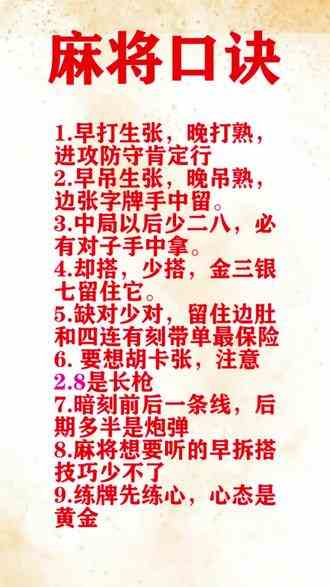 麻将口诀
1.早打生张，晚打熟，
进攻防守肯定行
2.早吊生张，晚吊熟，
边张字牌手中留。
3.中局以后少二八，必
有对子手中拿。
4.却搭，少搭，金三银
七留住它。
5.缺对少对，留住边肚
和四连有刻带单最保险
6. 要想胡卡张，注意
2.8是长枪
7.暗刻前后一条线，后
期多半是炮弹
8.麻将想要听的早拆搭
技巧少不了
9.练牌先练心，心态是
黄金